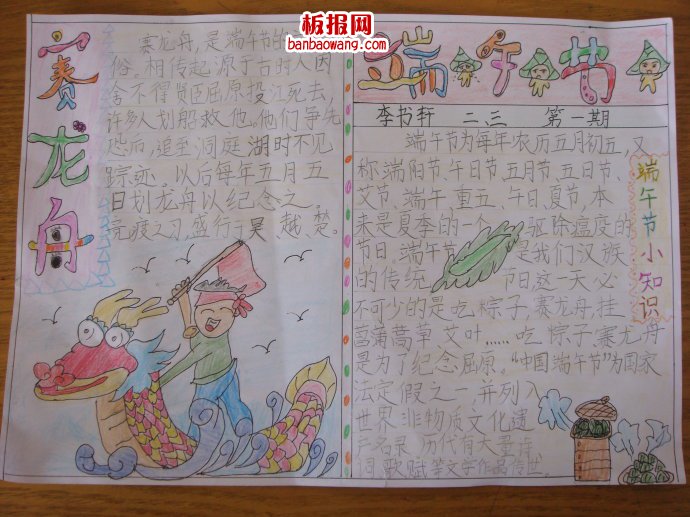 板报网
banbaowang.com
赛龙舟
赛龙舟,是端午节的
俗。相传起源于古时人因
舍不得贤臣屈原投江死去,
许多人划船救他。他们争先
恐后,追至洞庭湖时不见
踪迹。以后每年五月五
日划龙舟以纪念之。
竞渡之习,盛行于吴、越、楚。
端午节
李书轩 二、三 第一期
端午节为每年农历五月初五,又
称端阳节、午日节、五月节、五日节、
艾节、端午、重五、午日、夏节,本
来是夏季的一个 驱除瘟疫的
节日,端午节 是我们汉族
的传统 节日,这一天必
不可少的是吃粽子,赛龙舟,挂
菖蒲蒿草艾叶……吃粽子赛龙舟
是为了纪念屈原。“中国端午节”为国家
法定假之一并列入
世界非物质文化遗
名录 历代有大量诗
词歌赋等文学作品传世。
端午节小知识